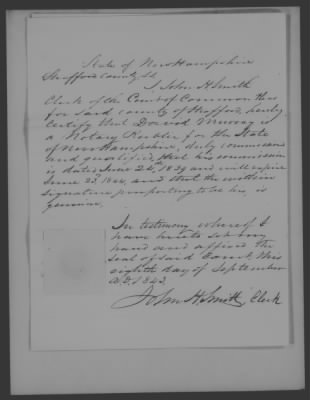 State of New Hampshire
Strafford County SS.
I John H Smith
Clerk of the Court of Common Pleas
for said county of Strafford, hereby
certify that David Murray is
a Notary Public for the State
of New Hampshire, duly commissioned
and qualified, that his commission
is dated June 26th 1839 and will expire
June 1844, and that the within
signature purporting to be his is
genuine.
In testimony whereof I
have hereto set my
hand and affixed the
seal of said Court, this
eighth day of September
A.D. 1843.
John H. Smith, Clerk